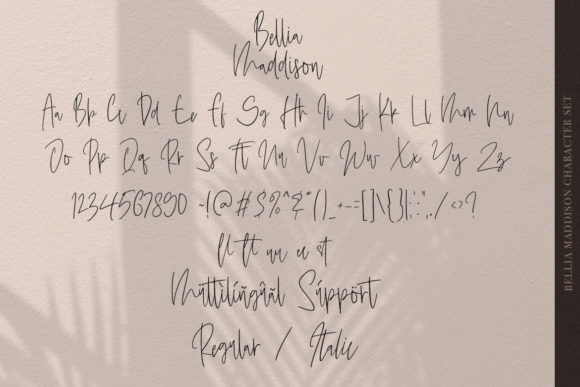 Bellia
Maddison
Aa Bb Cc Dd Ee Ff Gg Hh Ii Jj Kk Ll Mm Nn
Oo Pp Qq Rr Ss Tt Uu Vv Ww Xx Yy Zz
1234567890 ~!@#$%^&*()_+-=[]\{}|;:'",./<>?
ll tt
st
Mùttìlíñgûãl Súppört
Regular / Italic
BELLIA MADDISON CHARACTER SET